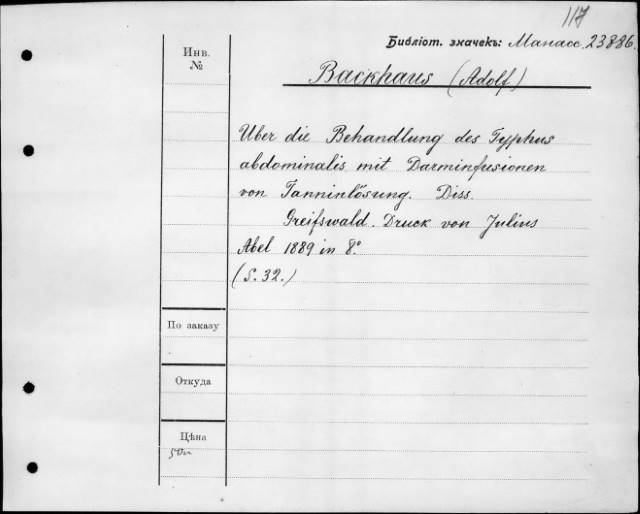 117
Библіот. значекъ: Манасс. 23886.
Инв.
№
Backhaus (Adolf)
Über die Behandlung des Typhus
abdominalis mit Darminfusionen
von Tanninlösung. Diss.
Greifswald. Druck von Julius
Abel 1889 in 8°.
(S. 32.)
По заказу
Откуда
Цѣна